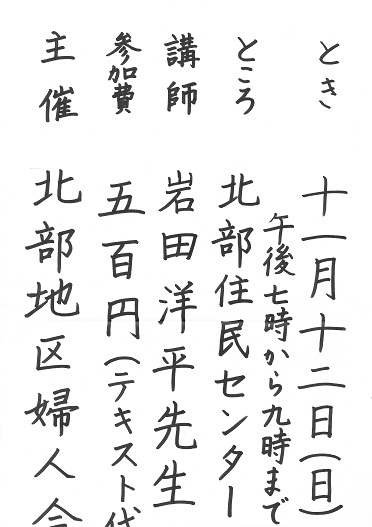 とき 十一月十二日(日)
午後七時から九時まで
ところ 北部住民センター
講師 岩田洋平先生
参加費 五百円(テキスト代
主催 北部地区婦人会